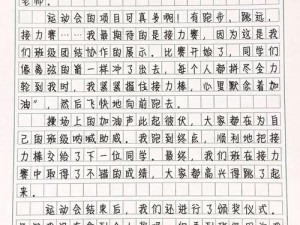 老师。
运动会的项目可真多啊！有跑步，跳远，
接力赛……我最期待的是接力赛，因为这是我
们班级团结协作的展示，比赛开始了，同学们
像离弦的箭一样冲了出去，每个人都拼尽全力
轮到我时，我紧紧握住接力棒，心里默念着加
油”，然后飞快地向前跑去。
操场上的加油声此起彼伏，大家都在为自
己的班级呐喊助威。我跑到终点，顺利地把接
力棒交给了下一位同学。最终，我们班在接力
赛中取得了不错的成绩，大家都高兴得跳了起
来。
运动会结束后，我们还进行了颁奖仪式。